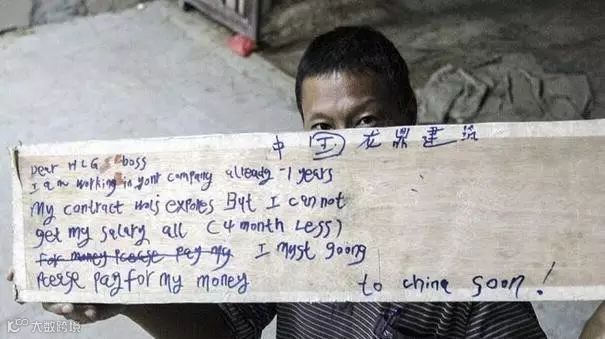 中国龙鼎建筑
Dear HLG boss
I am working in yont company already -1 years
My contract wols expores But I can not
get my salary all (4 month Less)
for money Pleese pay my I must goong
Pleese pay for my money to china soon!
大数跨境